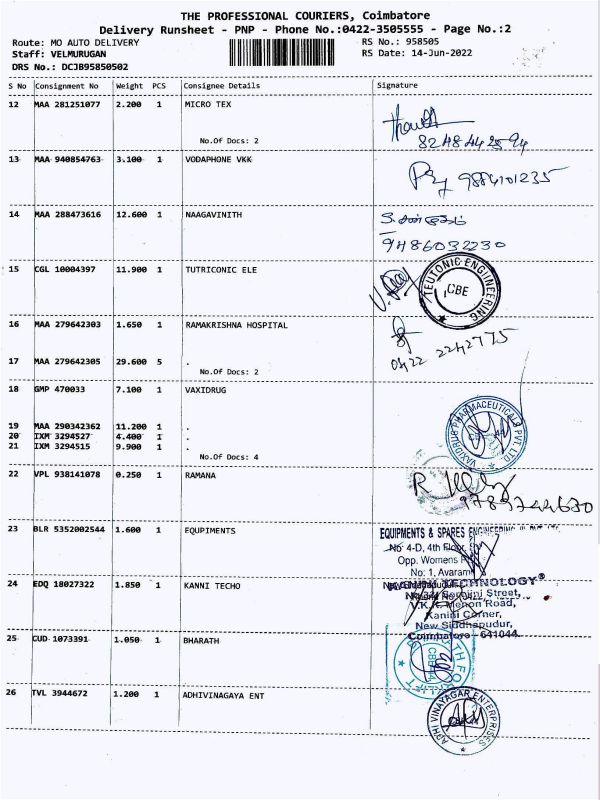 THE PROFESSIONAL COURIERS, Coimbatore
Delivery Runsheet - PNP - Phone No.:0422-3505555 - Page No.:2
Route: MO AUTO DELIVERY RS No.: 958505
Staff: VELMURUGAN RS Date: 14-Jun-2022
DRS No.: DCJB95850502
S No Consignment No Weight PCS Consignee Details Signature
12 MAA 281251077 2.200 1 MICRO TEX
No.Of Docs: 2
13 MAA 940854763 3.100 1 VODAPHONE VKK
9884101235
14 MAA 288473616 12.600 1 NAAGAVINITH
9486032230
15 CGL 10004397 11.900 1 TUTRICONIC ELE
TEUTONIC ENGINEERING
CBE
16 MAA 279642303 1.650 1 RAMAKRISHNA HOSPITAL
0422 2242775
17 MAA 279642305 29.600 5 .
No.Of Docs: 2
18 GMP 470033 7.100 1 VAXIDRUG
VAXIDRUG PHARMACEUTICALS PVT. LTD
19 MAA 290342362 11.200 1 .
20 IXM 3294527 4.400 1 .
21 IXM 3294515 9.900 1 .
No.Of Docs: 4
22 VPL 938141078 0.250 1 RAMANA
23 BLR 5352002544 1.600 1 EQUPIMENTS
EQUIPMENTS & SPARES ENGINEERING
No: 4-D, 4th Floor,
Opp. Womens
No: 1, Avaram
24 EDQ 18027322 1.850 1 KANNI TECHO
TECHNOLOGY
Street,
V.K.K. Menon Road,
Corner,
New Siddhapudur,
Coimbatore - 641044
25 CUD 1073391 1.050 1 BHARATH
26 TVL 3944672 1.200 1 ADHIVINAGAYA ENT
ADHI VINAYAGAR ENTERPRISES